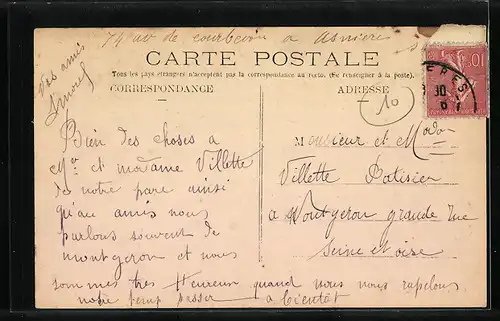 74 av de courbevoie a Asniere
CARTE POSTALE
Tous les pays étrangers n'acceptent pas la correspondance au recto. (Se renseigner à la poste).
CORRESPONDANCE
ADRESSE
vos amis
10
10
ERES
Bien des choses a
Mr et madame Villette
de notre pare ainsi
qu'au amis nous
parlons souvent de
montgeron et nous
sommes tres Heureux quand nous nous rapelons
notre temp passer a bientôt
Monsieur et Mada
Villette Patisier
a Montgeron grande rue
Seine et oise